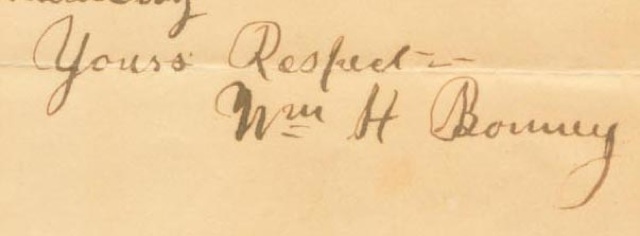 Yours Respect—
Wm H Bonney